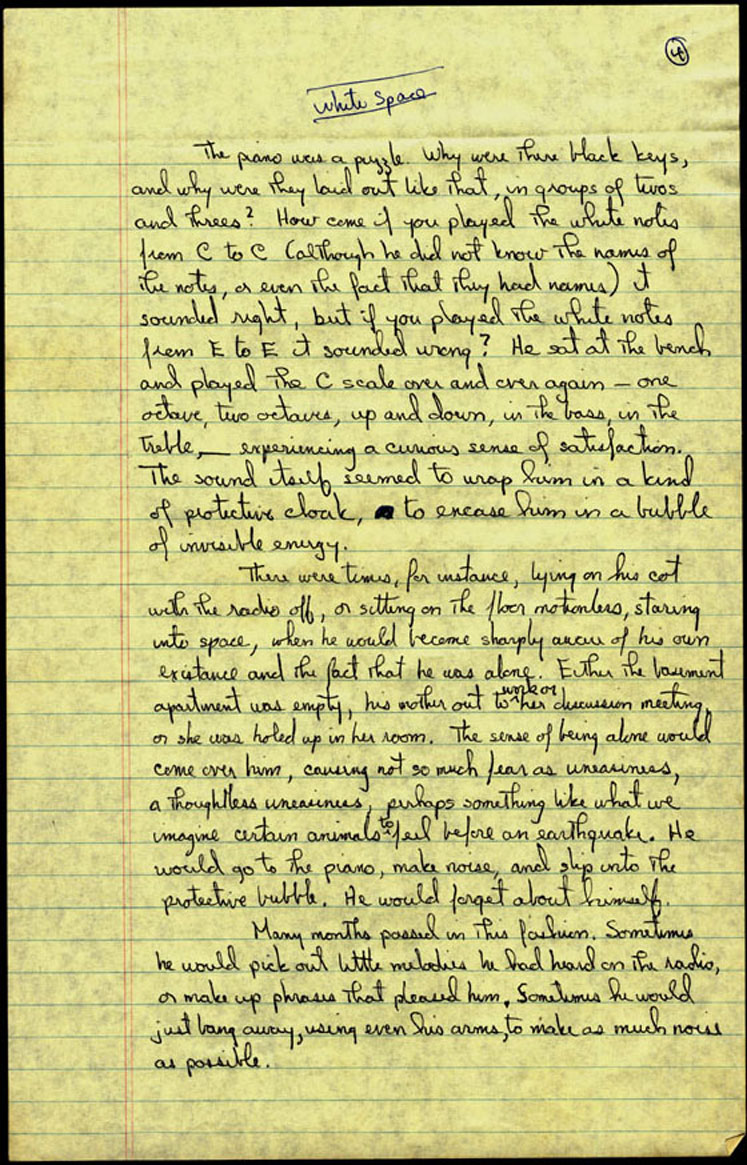 4
White Space
The piano was a puzzle. Why were there black keys,
and why were they laid out like that, in groups of twos
and threes? How come if you played the white notes
from C to C (although he did not know the names of
the notes, or even the fact that they had names) it
sounded right, but if you played the white notes
from E to E it sounded wrong? He sat at the bench
and played the C scale over and over again — one
octave, two octaves, up and down, in the bass, in the
treble, — experiencing a curious sense of satisfaction.
The sound itself seemed to wrap him in a kind
of protective cloak, to encase him in a bubble
of invisible energy.
There were times, for instance, lying on his cot
with the radio off, or sitting on the floor motionless, staring
into space, when he would become sharply aware of his own
existance and the fact that he was alone. Either the basement
apartment was empty, his mother out to work or her discussion meeting,
or she was holed up in her room. The sense of being alone would
come over him, causing not so much fear as uneasiness,
a thoughtless uneasiness, perhaps something like what we
imagine certain animals to feel before an earthquake. He
would go to the piano, make noise, and slip into the
protective bubble. He would forget about himself.
Many months passed in this fashion. Sometimes
he would pick out little melodies he had heard on the radio,
or make up phrases that pleased him. Sometimes he would
just bang away, using even his arms, to make as much noise
as possible.